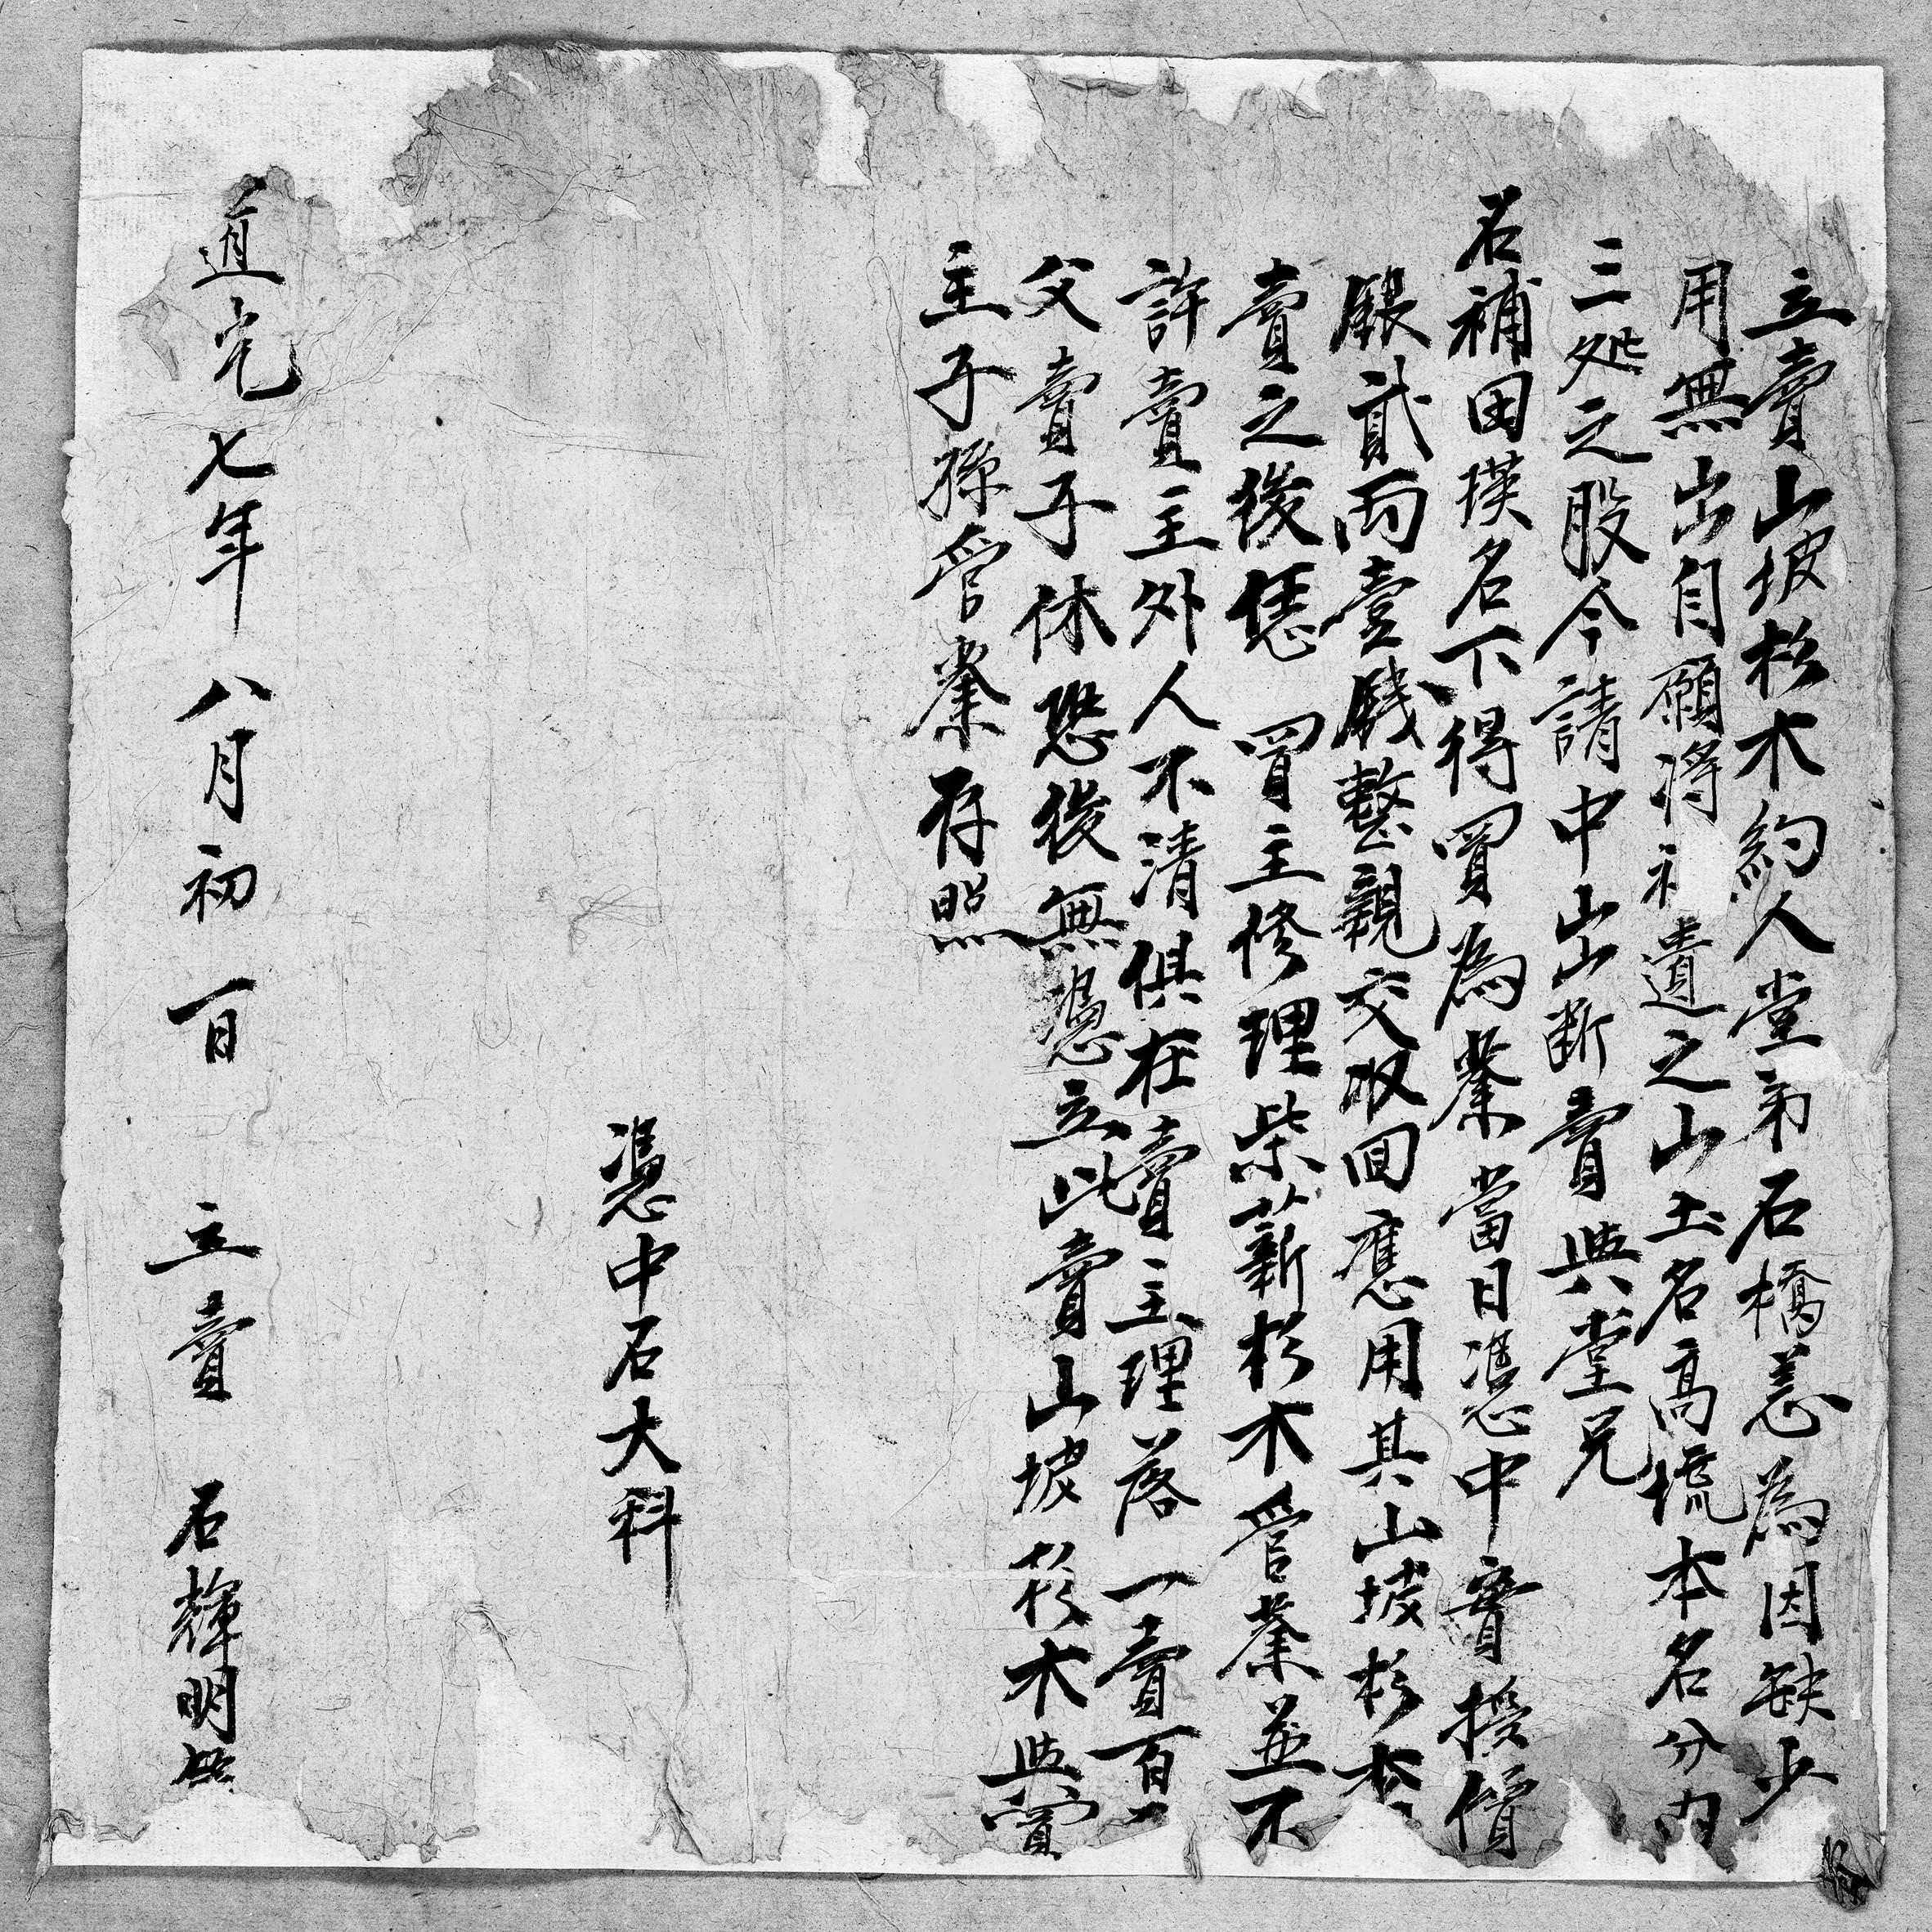 立賣山坡杉木約人堂弟石橋恙為因缺少
用無出自願將遺之山土名高坑本名分內
三処之股今請中出山斷賣與堂兄
石補田瑛名下得買為業當日凴中實授價
銀貳両壹錢整親交収回應用其山坡杉木
賣之後恁買主修理柴薪杉木管業並不
許賣主外人不清俱在賣主理落一賣百
父賣子休恐後無凴立此賣山坡杉木與買
主子孫管業存照
凴中石大科
道光七年八月初一日立賣石輝明